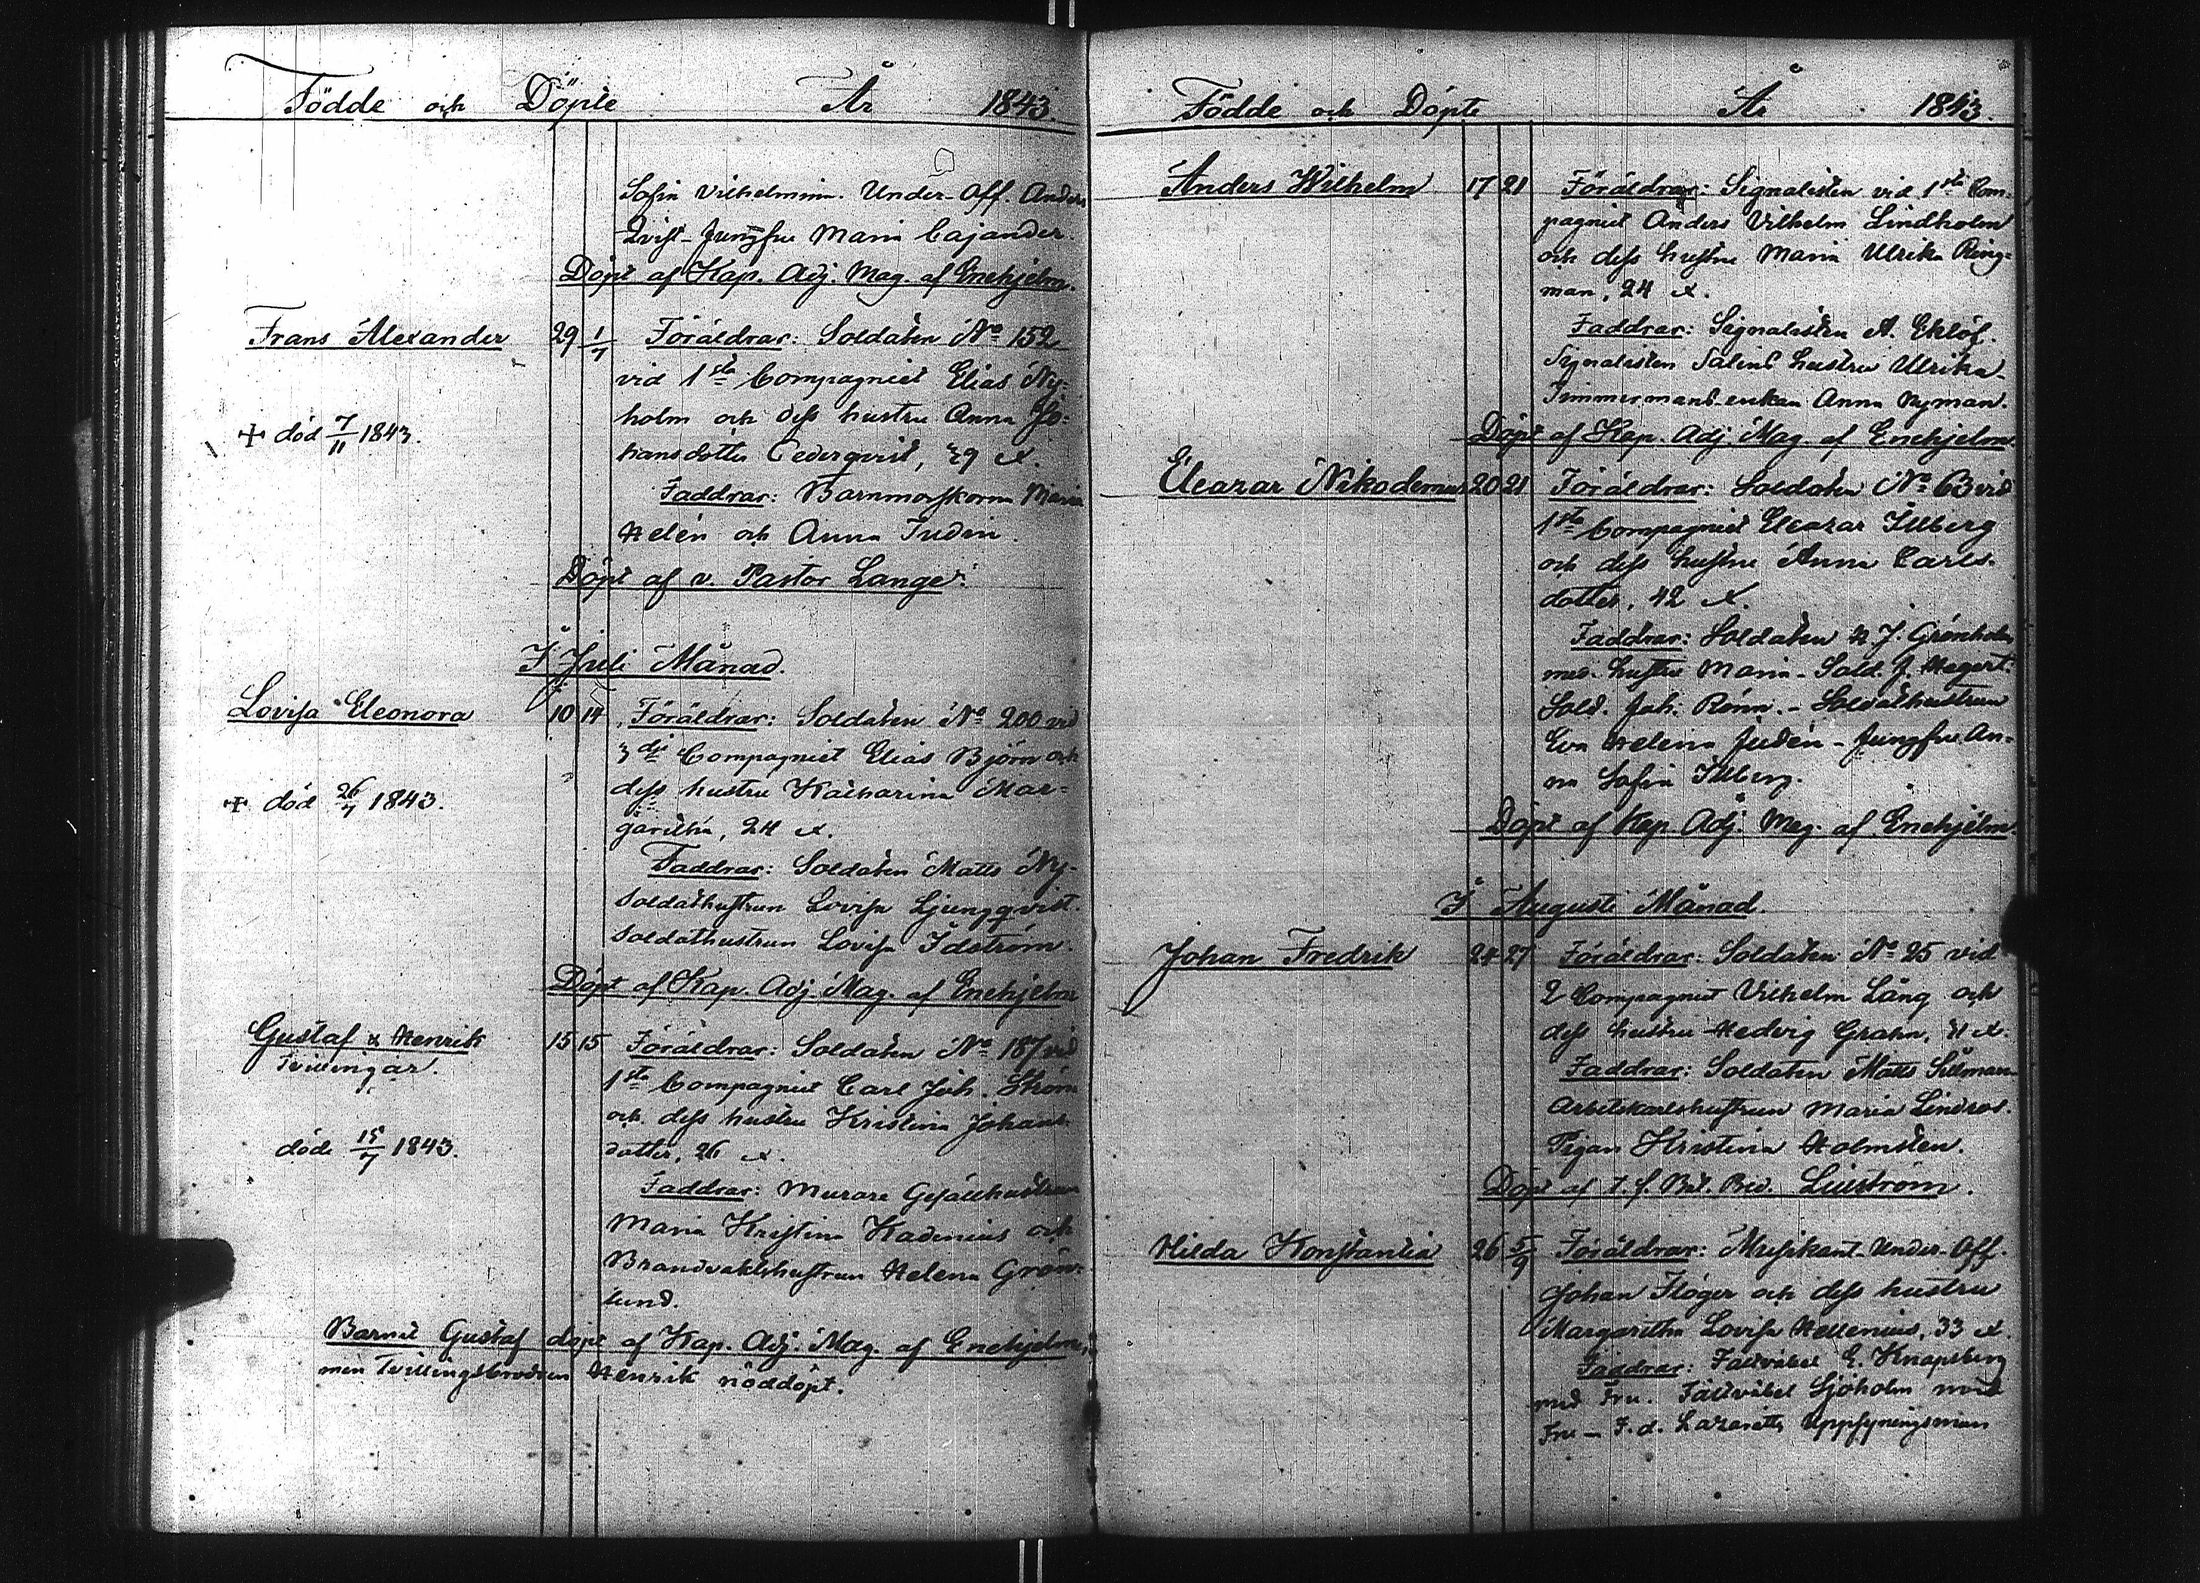 Födde och Döpte År 1843.
Sofia Vilhelmina. Under-Off. Anders
Qvist - Jungfru Maria Cajander.
Döpt af Kap. Adj. Mag. af Enehjelm.
Frans Alexander 29 1/7 Föräldrar: Soldaten No 152
vid 1sta Compagniet Elias Ny-
holm och dess hustru Anna Jo-
hansdotter Cederqvist, 29 år.
+ död 7/11 1843.
Faddrar: Barnmorskorna Maria
Helén och Anna Judin.
Döpt af v. Pastor Lange.
I Juli Månad.
Lovisa Eleonora 10 14 Föräldrar: Soldaten No 200 vid
3dje Compagniet Elias Björn och
dess hustru Katharina Mar-
garetha, 24 år.
+ död 26/7 1843.
Faddrar: Soldaten Matts Ny-
Soldathustrun Lovisa Ljungqvist.
Soldathustrun Lovisa Idström.
Döpt af Kap. Adj. Mag. af Enehjelm
Gustaf & Henrik 15 15 Föräldrar: Soldaten No 187 vid
Tvillingar.
1sta Compagniet Carl Joh. Ström
och dess hustru Kristina Johans-
dotter, 26 år.
döde 15/7 1843.
Faddrar: Murare Gesällhustrun
Maria Kristina Kadenius och
Brandvaktshustrun Helena Grön-
lund.
Barnet Gustaf döpt af Kap. Adj. Mag. af Enehjelm,
men Tvillingsbrodren Henrik nöddöpt.
Födde och Döpte År 1843.
Anders Wilhelm 17 21 Föräldrar: Signalisten vid 1sta Com-
pagniet Anders Vilhelm Lindholm
och dess hustru Maria Ulrika Ring-
man, 24 år.
Faddrar: Signalisten A. Eklöf.
Signalisten Salins hustru Ulrika-
Timmermans-enkan Anna Nyman.
Döpt af Kap. Adj Mag. af Enehjelm.
Eleazar Nikodemus 20 21 Föräldrar: Soldaten No 63 vid
1sta Compagniet Eleazar Illberg
och dess hustru Anna Carls-
dotter, 42 år.
Faddrar: Soldaten H J. Grönholm
med hustru Maria - Sold. J. Hagert.
Sold. Joh. Rönn. - Soldathustrun
Eva Helena Judén - Jungfru An-
na Sofia Illberg.
Döpt af Kap Adj. Mag. af Enehjelm.
I Augusti Månad.
Johan Fredrik 24 27 Föräldrar: Soldaten No 25 vid
2 Compagniet Vilhelm Lång och
dess hustru Hedvig Grahn, 41 år.
Faddrar: Soldaten Matts Sillman
Arbetskarlshustrun Maria Lindros.
Pigan Kristina Holmstén.
Döpt af t. f. Bat. Pred. Liliström.
Hilda Konstantia 26 5/9 Föräldrar: Musikant-Under-Off.
Johan Flöger och dess hustru
Margaretha Lovisa Hellenius, 33 år.
Faddrar: Fältväbel E. Knapsberg
med Fru. Fältväbel Sjöholm med
Fru - F. d. Lazaretts Uppsyningsman